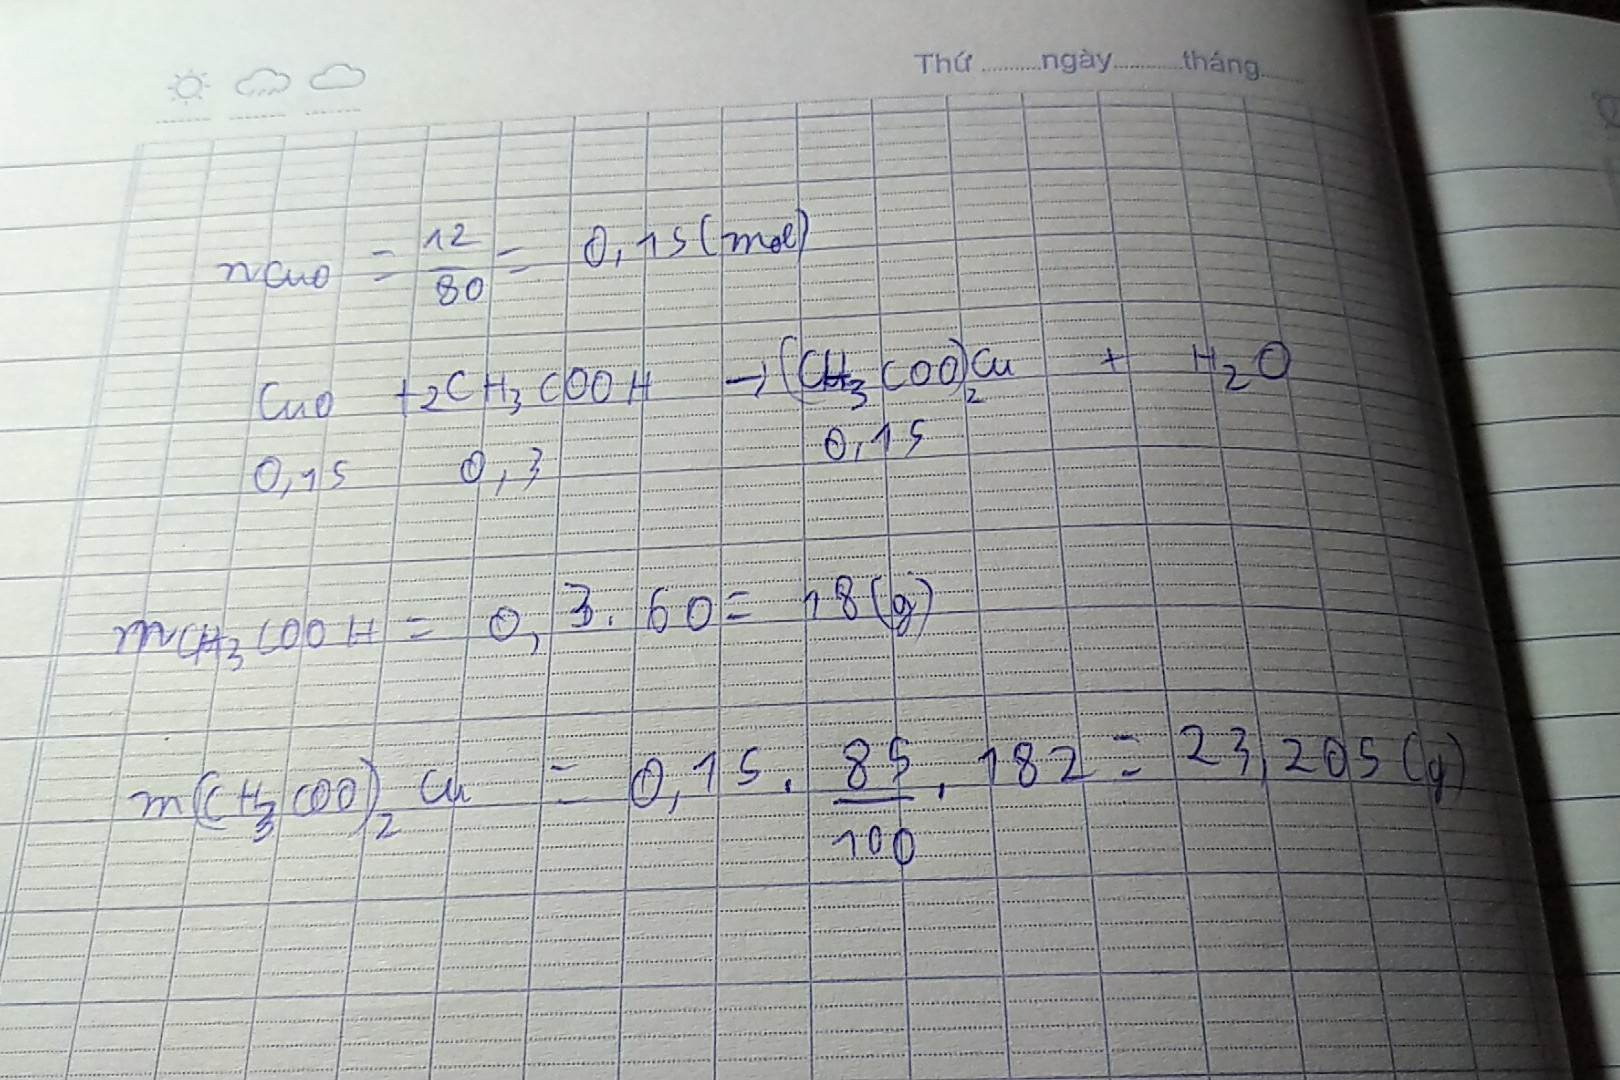 Thứ ........... ngày ........... tháng ........
nCuO = 12/80 = 0,15 (mol)
CuO + 2CH3COOH → (CH3COO)2Cu + H2O
0,15 0,3 0,15
mCH3COOH = 0,3 . 60 = 18 (g)
m(CH3COO)2Cu = 0,15 . 85/100 . 182 = 23,205 (g)